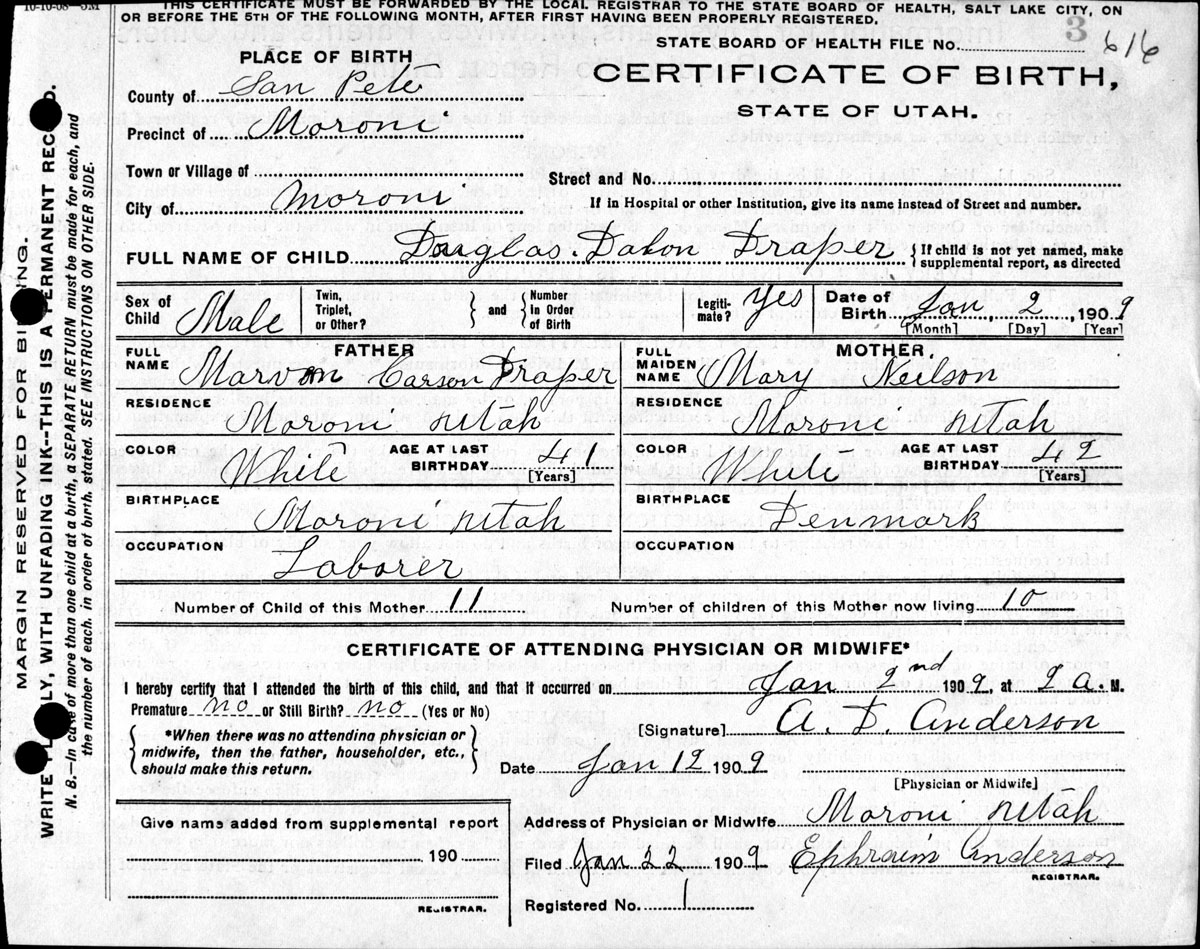 10-10-08--5M
THIS CERTIFICATE MUST BE FORWARDED BY THE LOCAL REGISTRAR TO THE STATE BOARD OF HEALTH, SALT LAKE CITY, ON
OR BEFORE THE 5TH OF THE FOLLOWING MONTH, AFTER FIRST HAVING BEEN PROPERLY REGISTERED.
3
STATE BOARD OF HEALTH FILE NO. 616
PLACE OF BIRTH
CERTIFICATE OF BIRTH,
STATE OF UTAH.
County of San Pete
Precinct of Moroni
Town or Village of
Street and No.
City of Moroni
If in Hospital or other Institution, give its name instead of Street and number.
FULL NAME OF CHILD Douglas Dalon Draper {If child is not yet named, make supplemental report, as directed
Sex of Child Male Twin, Triplet, or Other? } and { Number in Order of Birth Legiti-mate? Yes Date of Birth Jan 2, 1909
[Month] [Day] [Year]
FATHER
FULL NAME Carson Draper
RESIDENCE Moroni Utah
COLOR White AGE AT LAST BIRTHDAY 41 [Years]
BIRTHPLACE Moroni Utah
OCCUPATION Laborer
MOTHER.
FULL MAIDEN NAME Mary Neilson
RESIDENCE Moroni Utah
COLOR White AGE AT LAST BIRTHDAY 42 [Years]
BIRTHPLACE Denmark
OCCUPATION
Number of Child of this Mother 11 Number of children of this Mother now living 10
CERTIFICATE OF ATTENDING PHYSICIAN OR MIDWIFE*
I hereby certify that I attended the birth of this child, and that it occurred on Jan 2nd 1909, at 2 a. M.
Premature no or Still Birth? no (Yes or No)
[Signature] A. D. Anderson
*When there was no attending physician or
midwife, then the father, householder, etc.,
should make this return.
Date Jan 12 1909
[Physician or Midwife]
Give name added from supplemental report
190
REGISTRAR.
Address of Physician or Midwife Moroni Utah
Filed Jan 22 1909 Ephraim Anderson
REGISTRAR.
Registered No. 1
MARGIN RESERVED FOR BINDING.
WRITE PLAINLY, WITH UNFADING INK--THIS IS A PERMANENT RECORD.
N. B.—In case of more than one child at a birth, a SEPARATE RETURN must be made for each, and
the number of each, in order of birth, stated. SEE INSTRUCTIONS ON OTHER SIDE.